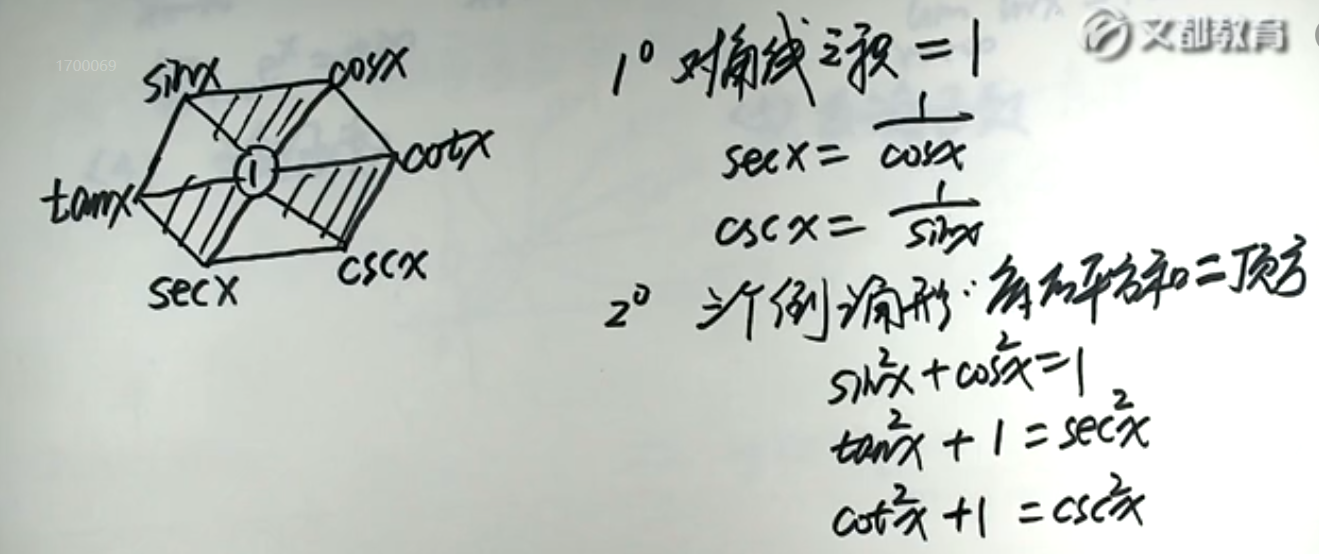 1700069
文都教育
sinx
cosx
1
tanx
cotx
secx
cscx
1° 对角线之积 = 1
secx = 1/cosx
cscx = 1/sinx
2° 三个倒三角形: 平方和 = 顶方
sin²x + cos²x = 1
tan²x + 1 = sec²x
cot²x + 1 = csc²x